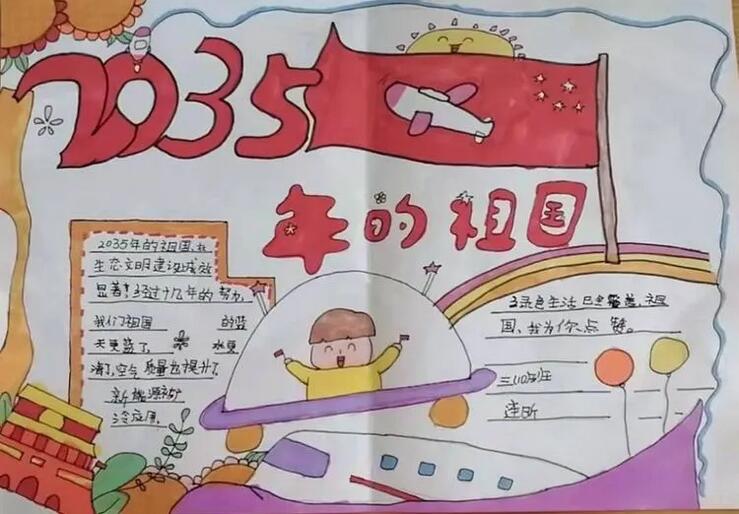 2035
年的祖国
2035年的祖国,
生态文明建设成效
显著!经过十几年的努力,
我们祖国的蓝
天更蓝了,水更
清了,空气质量也提升了
新能源
泛应用.
绿色生活已全覆盖,祖
国,我为你点赞。
班